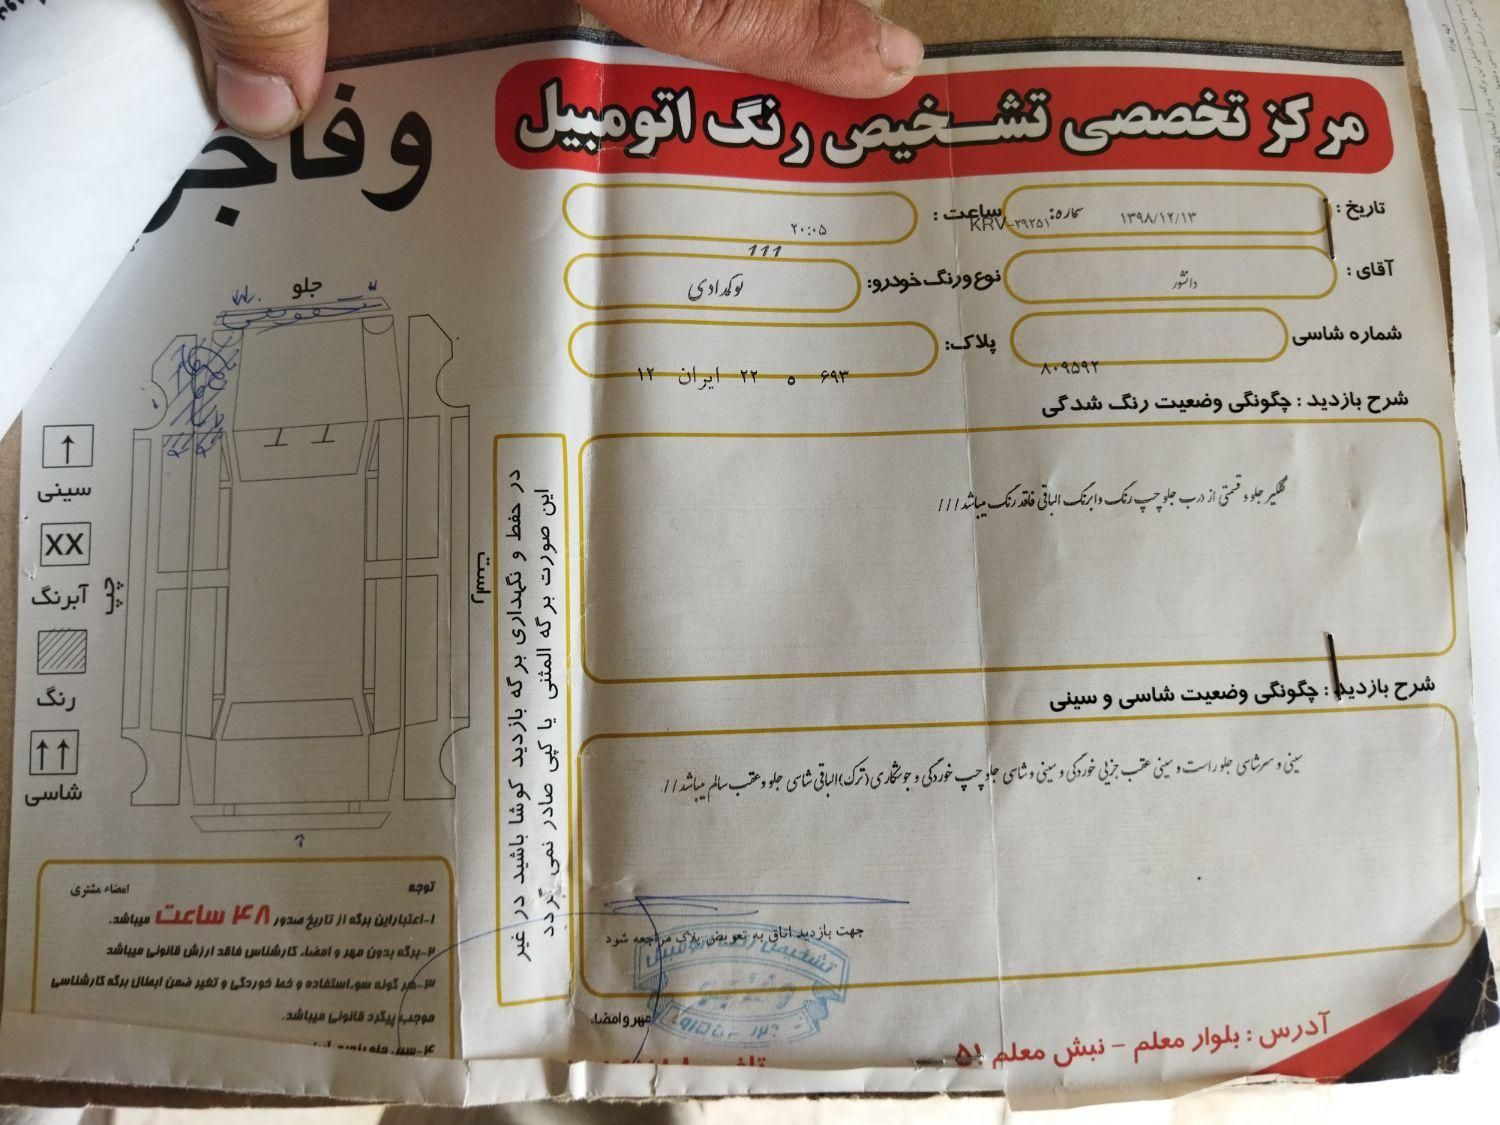 مرکز تخصصی تشخیص رنگ اتومبیل
وفاجو
تاریخ :
۱۳۹۸/۱۲/۱۳
شماره:
KRV-۲۹۲۵۱
ساعت :
۲۰:۰۵
آقای :
دانشور
نوع و رنگ خودرو:
111
نوکمدادی
شماره شاسی
۸۰۹۵۹۲
پلاک:
۶۹۳ ه ۲۲ ایران ۱۲
شرح بازدید : چگونگی وضعیت رنگ شدگی
گلگیر جلو و قسمتی از درب جلو چپ رنگ وابرنگ الباقی فاقد رنگ میباشد///
شرح بازدید : چگونگی وضعیت شاسی و سینی
سینی و سرشاسی جلو راست و سینی عقب جزیی خوردگی و سینی و شاسی جلو چپ خوردگی و جوشکاری (ترک)الباقی شاسی جلو و عقب سالم میباشد//
جهت بازدید اتاق به تعویض پلاک مراجعه شود
مهر و امضاء
تشخیص رنگ اتومبیل
آدرس : بلوار معلم - نبش معلم ۵۱
در حفظ و نگهداری برگه بازدید کوشا باشید در غیر
این صورت برگه المثنی یا کپی صادر نمی گردد
جلو
چپ
راست
سینی
XX
آبرنگ
رنگ
شاسی
توجه
امضاء مشتری
۱-اعتبار این برگه از تاریخ صدور ۴۸ ساعت میباشد.
۲-برگه بدون مهر و امضاء کارشناس فاقد ارزش قانونی میباشد
۳-هر گونه سوء استفاده و خط خوردگی و تغیر ضمن ابطال برگه کارشناسی
موجب پیگرد قانونی میباشد.